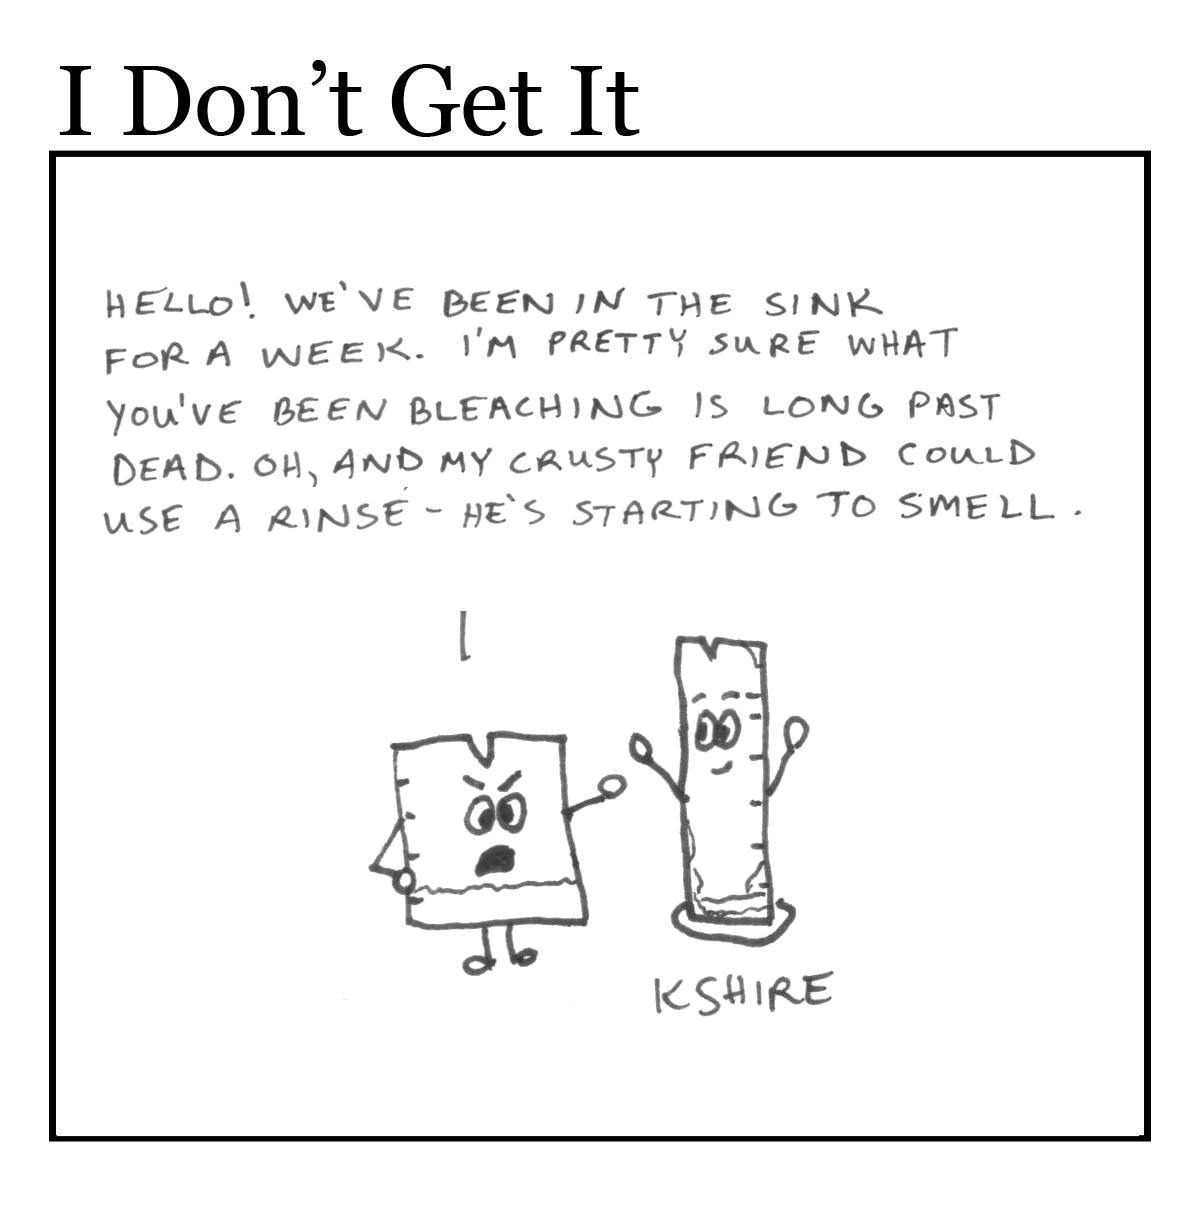 I Don't Get It
HELLO! WE'VE BEEN IN THE SINK
FOR A WEEK. I'M PRETTY SURE WHAT
YOU'VE BEEN BLEACHING IS LONG PAST
DEAD. OH, AND MY CRUSTY FRIEND COULD
USE A RINSE - HE'S STARTING TO SMELL.
KSHIRE